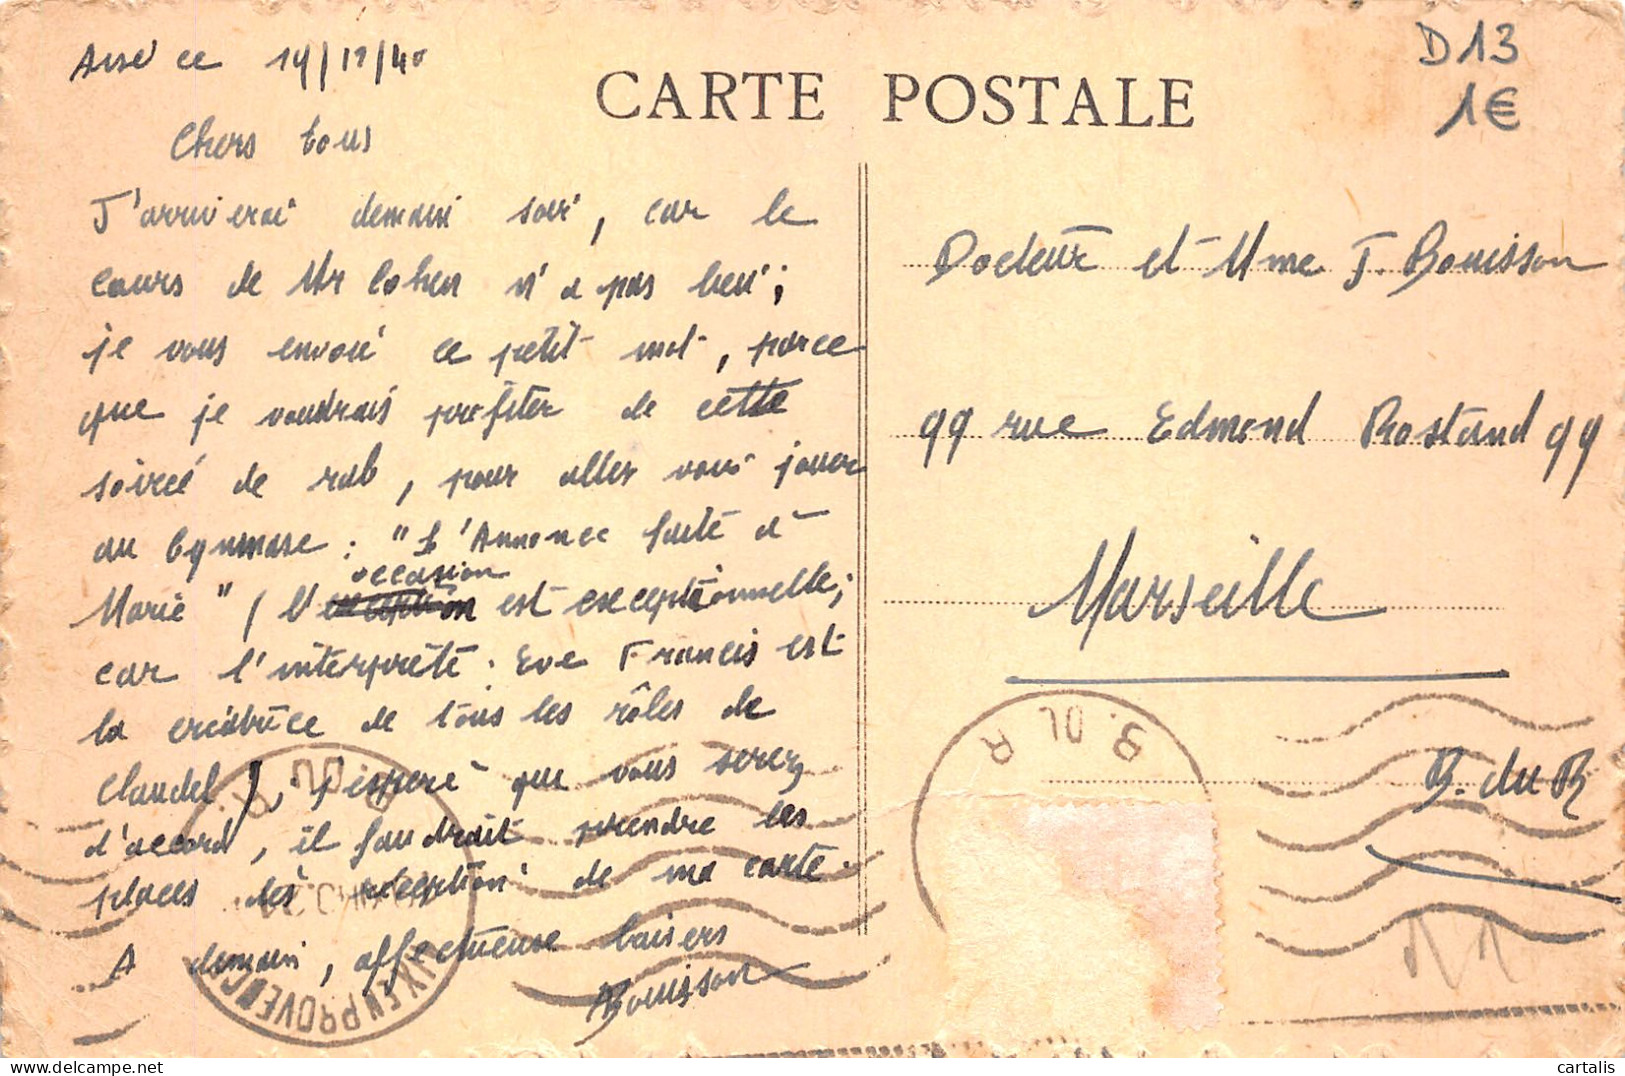 ce 19/12/40
CARTE POSTALE
D13
1€
Chers tous
J'arriverai demain soir, car le
cours de Mr Cohen n'a pas lieu ;
je vous envoie ce petit mot, parce
que je voudrais profiter de cette
soirée de rab, pour aller voir jouer
au Gymnase : "L'Annonce faite à
occasion
Marie" ( l'exception est exceptionnelle ;
car l'interprète : Eve Francis est
la créatrice de tous les rôles de
Claudel ), j'espère que vous serez
d'accord, il faudrait prendre les
places dès réception de ma carte.
A demain, affectueuse baisers
Bouisson
Docteur et Mme J. Bouisson
99 rue Edmond Rostand 99
Marseille
B. du R
B. DU R
AIX EN PROVENCE
B. DU R
cartalis